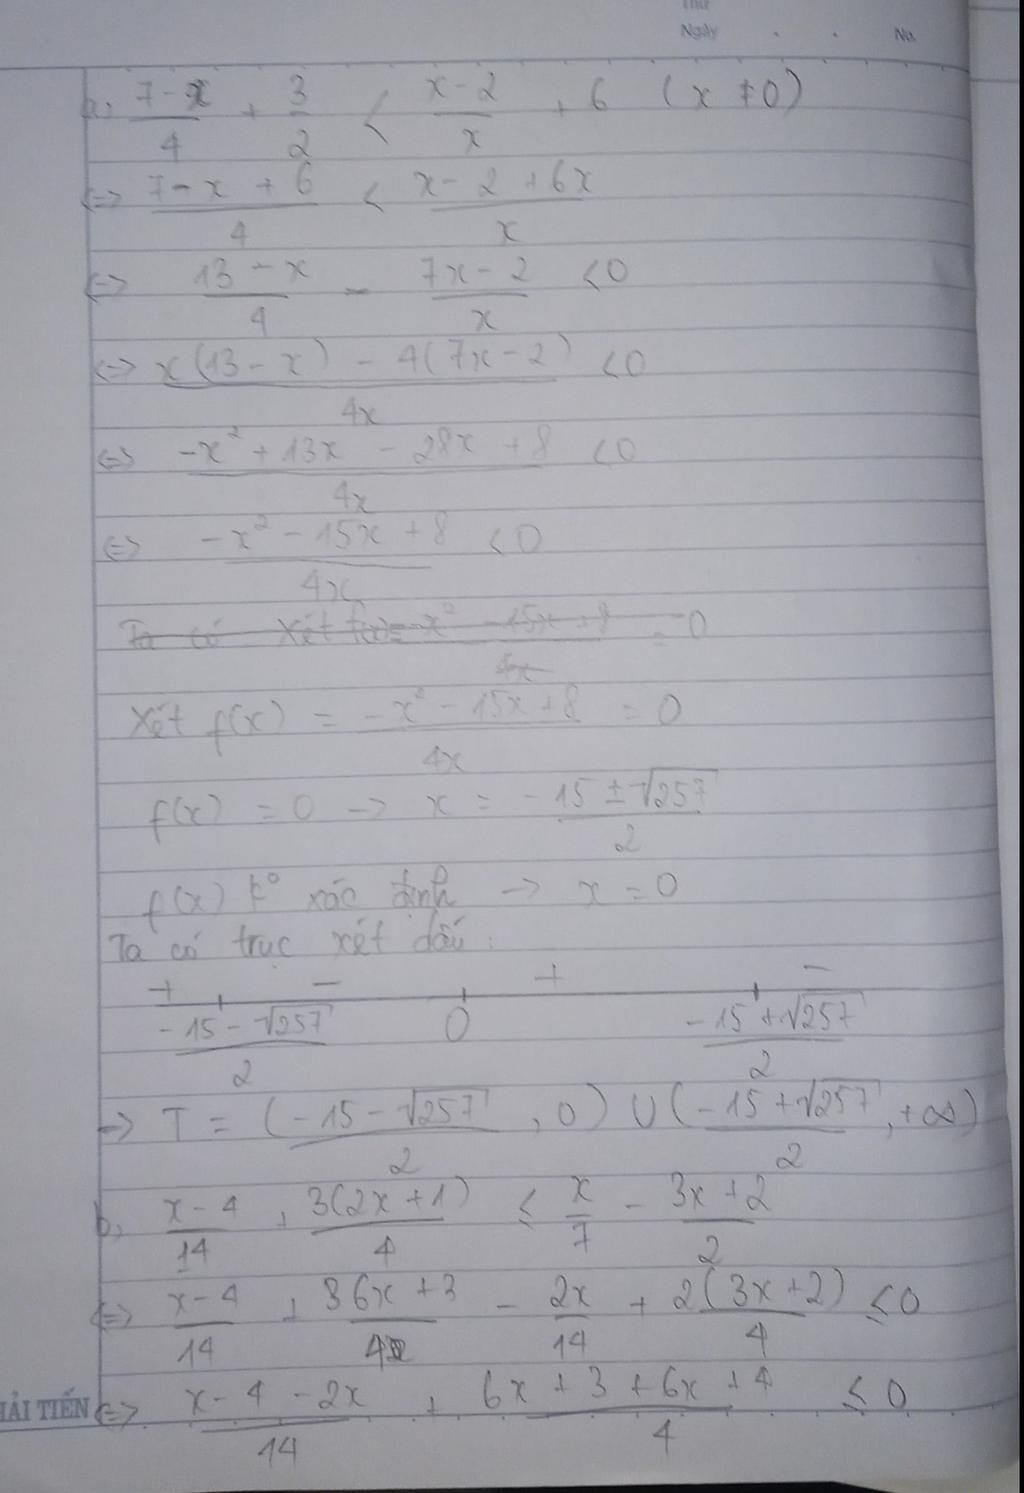 Thứ
Ngày . . No.
a, (7-x)/4 + 3/2 < (x-2)/x + 6 (x ≠ 0)
<=> (7-x+6)/4 < (x-2+6x)/x
<=> (13-x)/4 - (7x-2)/x < 0
<=> (x(13-x) - 4(7x-2))/4x < 0
<=> (-x² + 13x - 28x + 8)/4x < 0
<=> (-x² - 15x + 8)/4x < 0
Ta có xét f(x) = (-x² - 15x + 8)/4x = 0
Xét f(x) = (-x² - 15x + 8)/4x = 0
f(x) = 0 -> x = (-15 ± √257)/2
f(x) k° xác định -> x = 0
Ta có trục xét dấu:
+ - + -
(-15 - √257)/2 0 (-15 + √257)/2
-> T = ((-15 - √257)/2, 0) U ((-15 + √257)/2, +∞)
b, (x-4)/14 + 3(2x+1)/4 ≤ x/7 - (3x+2)/2
<=> (x-4)/14 + (6x+3)/4 - 2x/14 + 2(3x+2)/4 ≤ 0
<=> (x-4-2x)/14 + (6x+3+6x+4)/4 ≤ 0
HẢI TIẾN